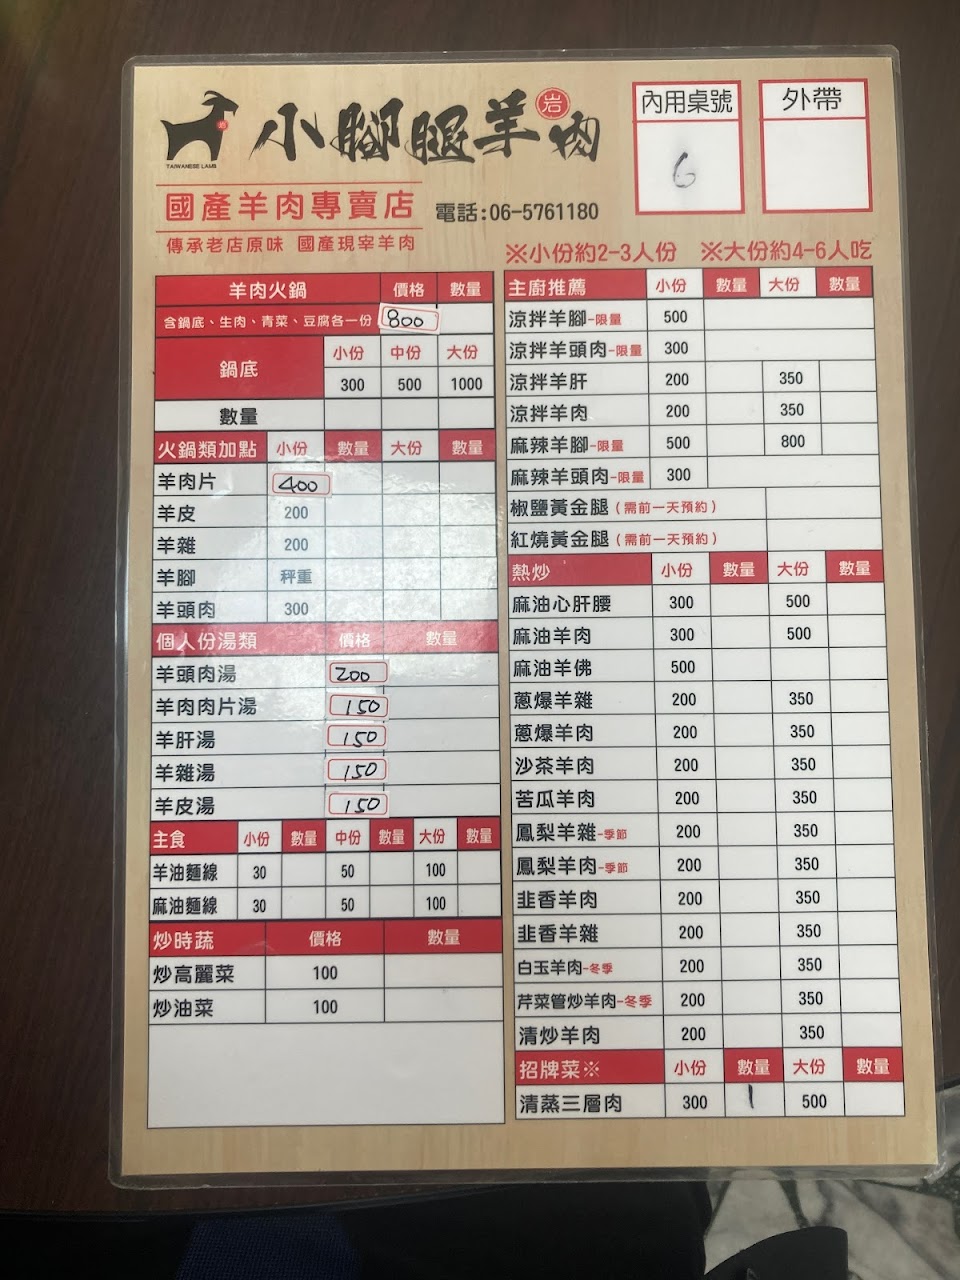 TAIWANESE LAMB
小腳腿羊肉
岩
內用桌號
6
外帶
國產羊肉專賣店
電話:06-5761180
傳承老店原味 國產現宰羊肉
※小份約2-3人份 ※大份約4-6人吃
羊肉火鍋 價格 數量
含鍋底、生肉、青菜、豆腐各一份 800
鍋底 小份 中份 大份
300 500 1000
數量
火鍋類加點 小份 數量 大份 數量
羊肉片 400
羊皮 200
羊雜 200
羊腳 秤重
羊頭肉 300
個人份湯類 價格 數量
羊頭肉湯 200
羊肉肉片湯 150
羊肝湯 150
羊雜湯 150
羊皮湯 150
主食 小份 數量 中份 數量 大份 數量
羊油麵線 30 50 100
麻油麵線 30 50 100
炒時蔬 價格 數量
炒高麗菜 100
炒油菜 100
主廚推薦 小份 數量 大份 數量
涼拌羊腳-限量 500
涼拌羊頭肉-限量 300
涼拌羊肝 200 350
涼拌羊肉 200 350
麻辣羊腳-限量 500 800
麻辣羊頭肉-限量 300
椒鹽黃金腿(需前一天預約)
紅燒黃金腿(需前一天預約)
熱炒 小份 數量 大份 數量
麻油心肝腰 300 500
麻油羊肉 300 500
麻油羊佛 500
蔥爆羊雜 200 350
蔥爆羊肉 200 350
沙茶羊肉 200 350
苦瓜羊肉 200 350
鳳梨羊雜-季節 200 350
鳳梨羊肉-季節 200 350
韭香羊肉 200 350
韭香羊雜 200 350
白玉羊肉-冬季 200 350
芹菜管炒羊肉-冬季 200 350
清炒羊肉 200 350
招牌菜※ 小份 數量 大份 數量
清蒸三層肉 300 1 500